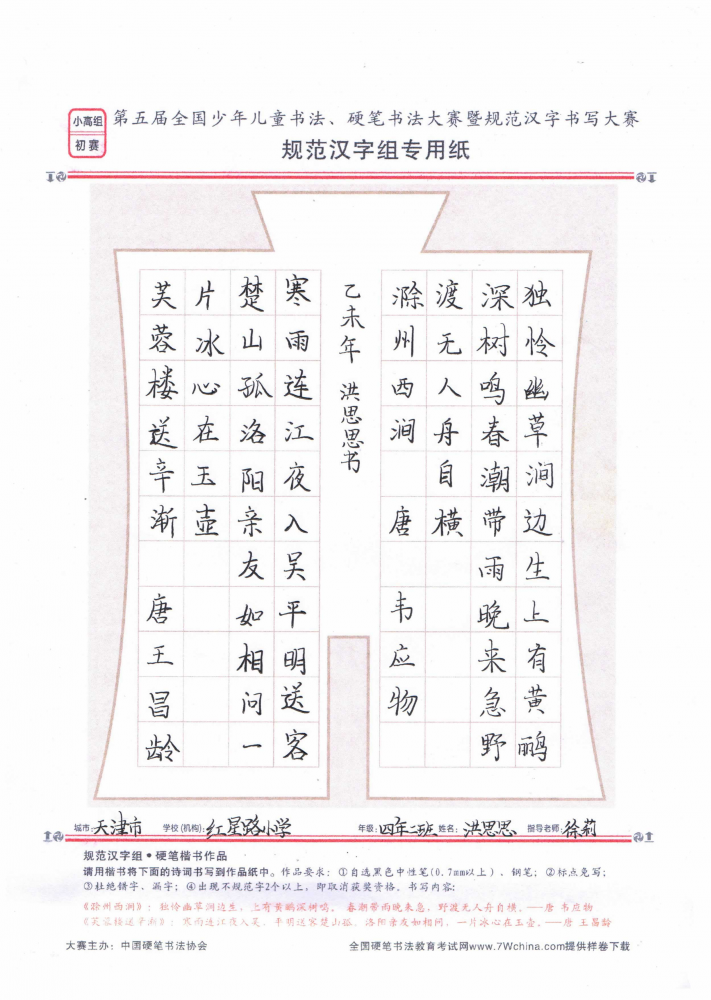 小高组
初赛
第五届全国少年儿童书法、硬笔书法大赛暨规范汉字书写大赛
规范汉字组专用纸
独怜幽草涧边生上有黄鹂
深树鸣春潮带雨晚来急野
渡无人舟自横
滁州西涧 唐 韦应物
乙未年 洪思思书
寒雨连江夜入吴平明送客
楚山孤洛阳亲友如相问一
片冰心在玉壶
芙蓉楼送辛渐 唐王昌龄
城市：天津市 学校(机构)：红星路小学 年级：四年二班 姓名：洪思思 指导老师：徐莉
规范汉字组•硬笔楷书作品
请用楷书将下面的诗词书写到作品纸中。作品要求：①自选黑色中性笔(0.7mm以上)、钢笔；②标点免写；
③杜绝错字、漏字；④出现不规范字2个以上，即取消获奖资格。书写内容：
《滁州西涧》：独怜幽草涧边生，上有黄鹂深树鸣。 春潮带雨晚来急，野渡无人舟自横。——唐 韦应物
《芙蓉楼送辛渐》：寒雨连江夜入吴，平明送客楚山孤。洛阳亲友如相问，一片冰心在玉壶。——唐 王昌龄
大赛主办：中国硬笔书法协会 全国硬笔书法教育考试网www.7Wchina.com提供样卷下载